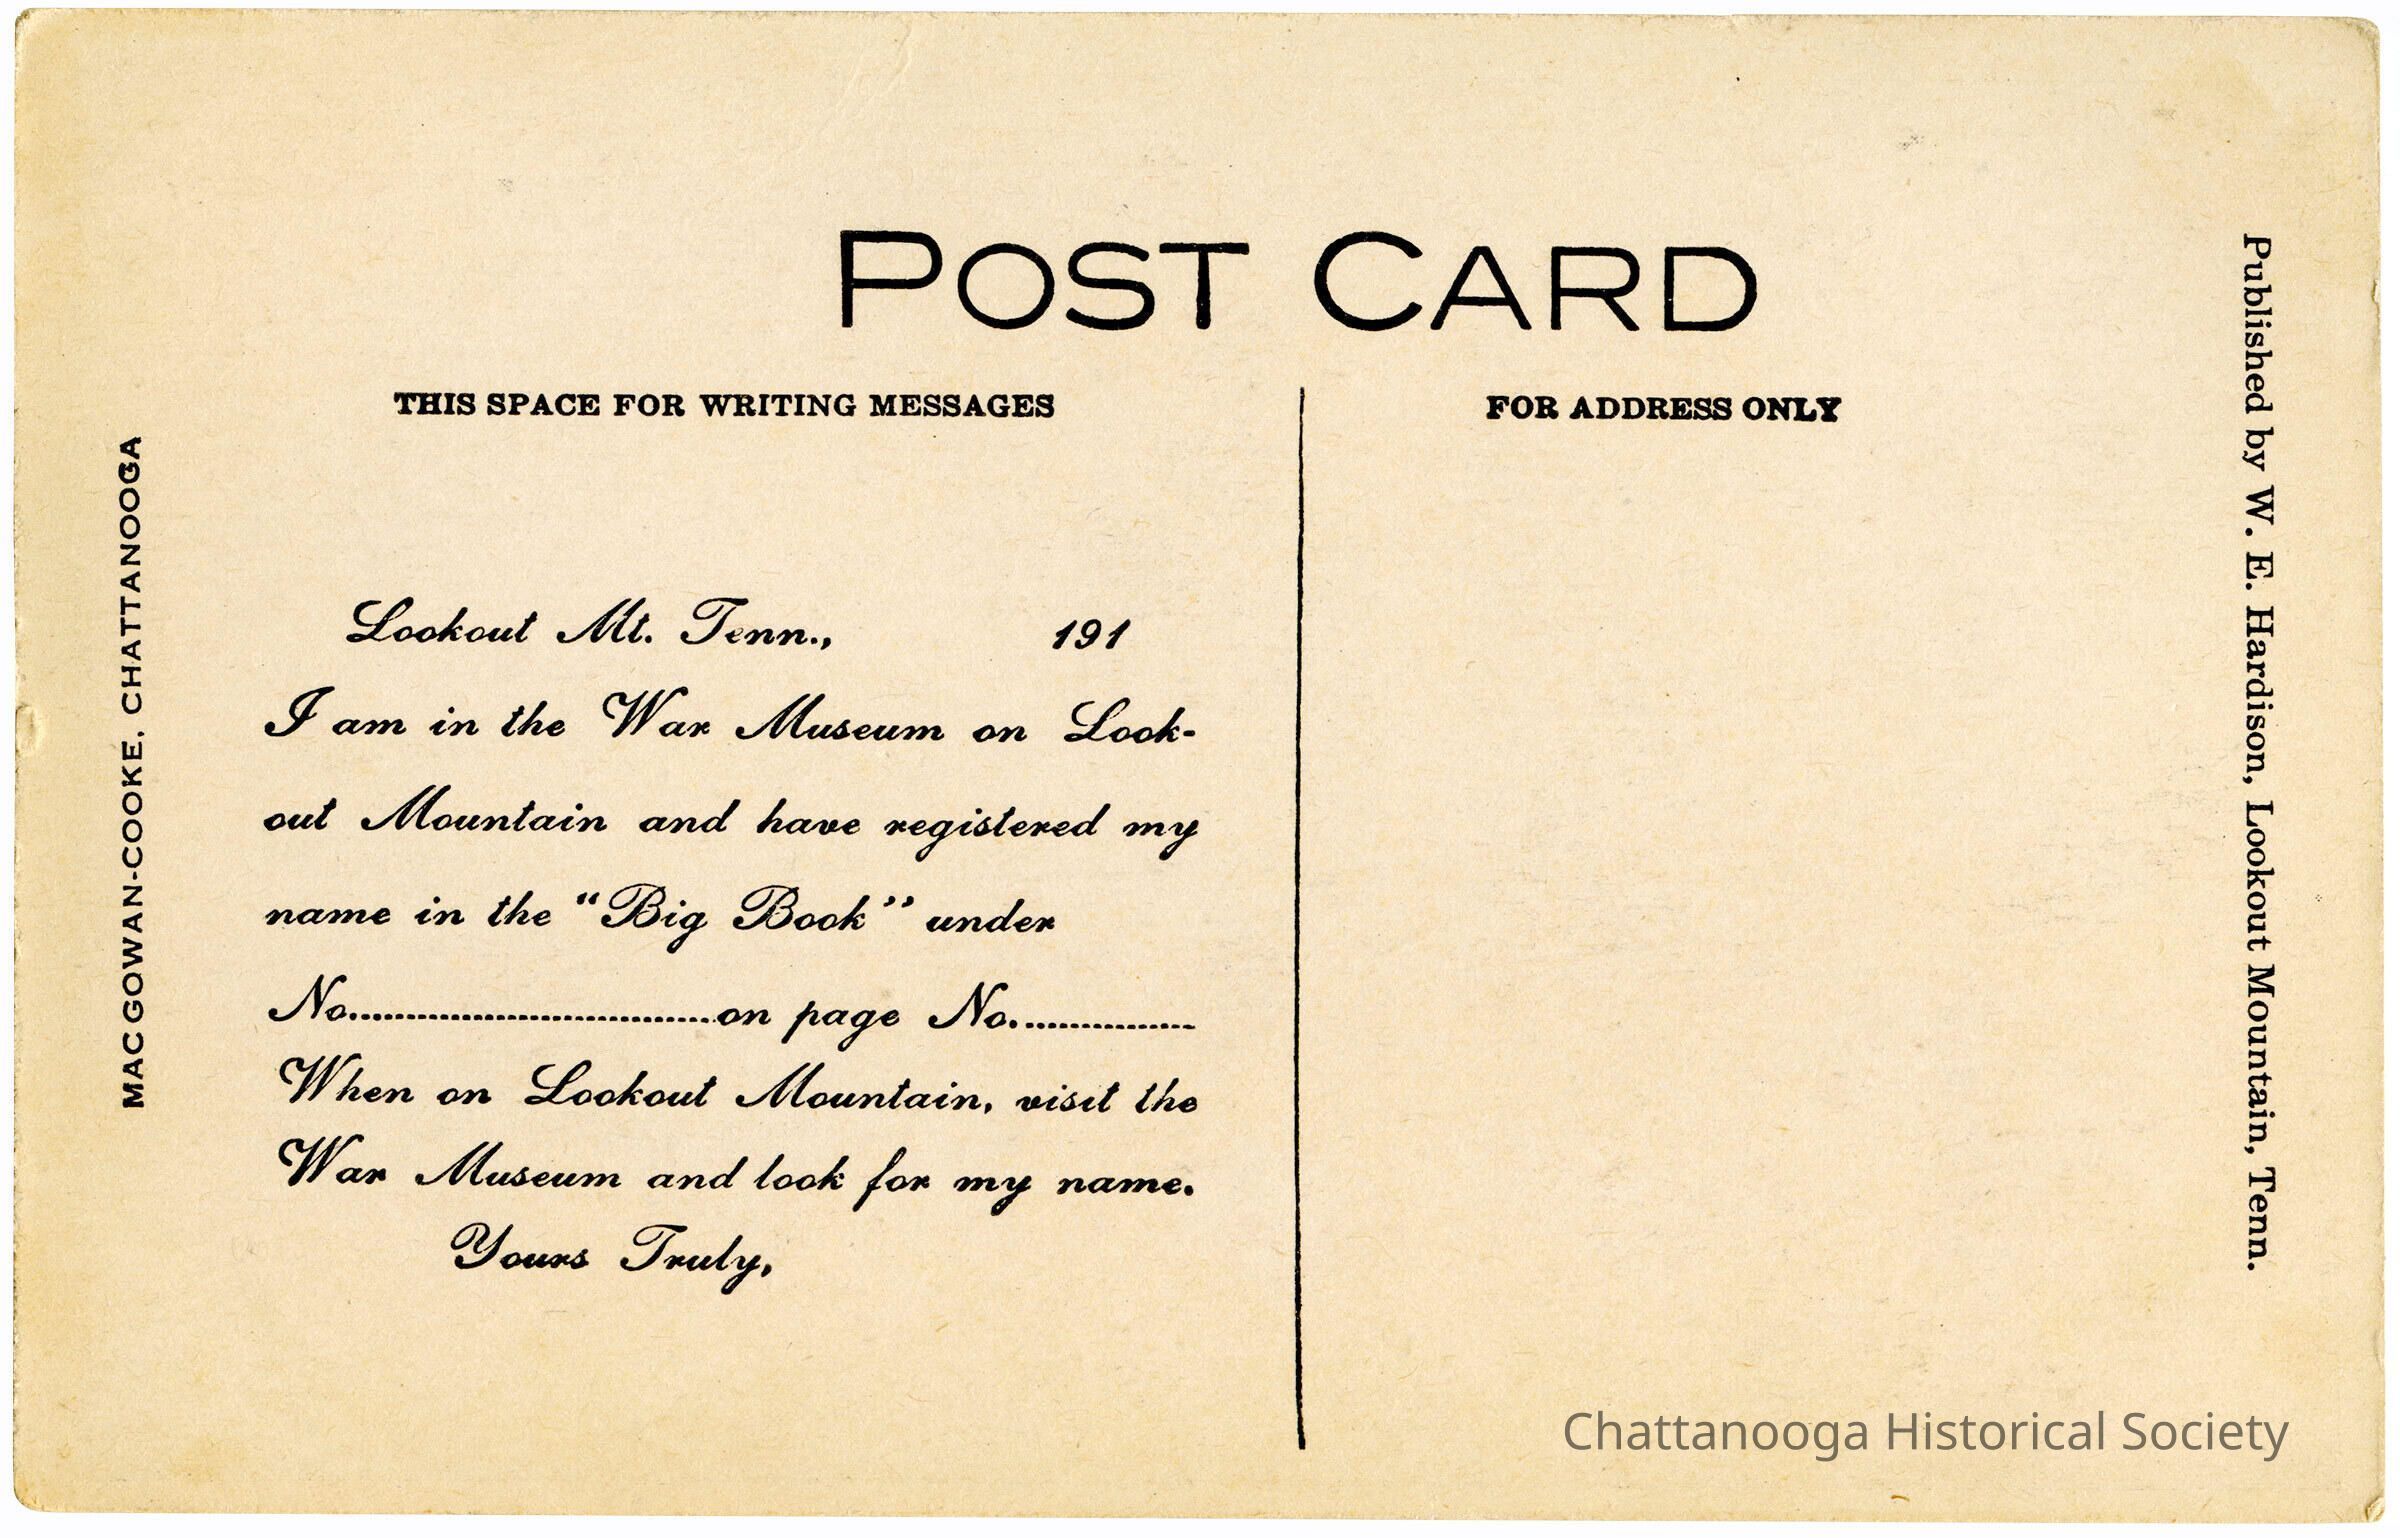 POST CARD
THIS SPACE FOR WRITING MESSAGES
FOR ADDRESS ONLY
MACGOWAN-COOKE, CHATTANOOGA
Lookout Mt. Tenn., 191
I am in the War Museum on Look-
out Mountain and have registered my
name in the "Big Book" under
No..............................on page No...............
When on Lookout Mountain, visit the
War Museum and look for my name.
Yours Truly,
Published by W. E. Hardison, Lookout Mountain, Tenn.
Chattanooga Historical Society